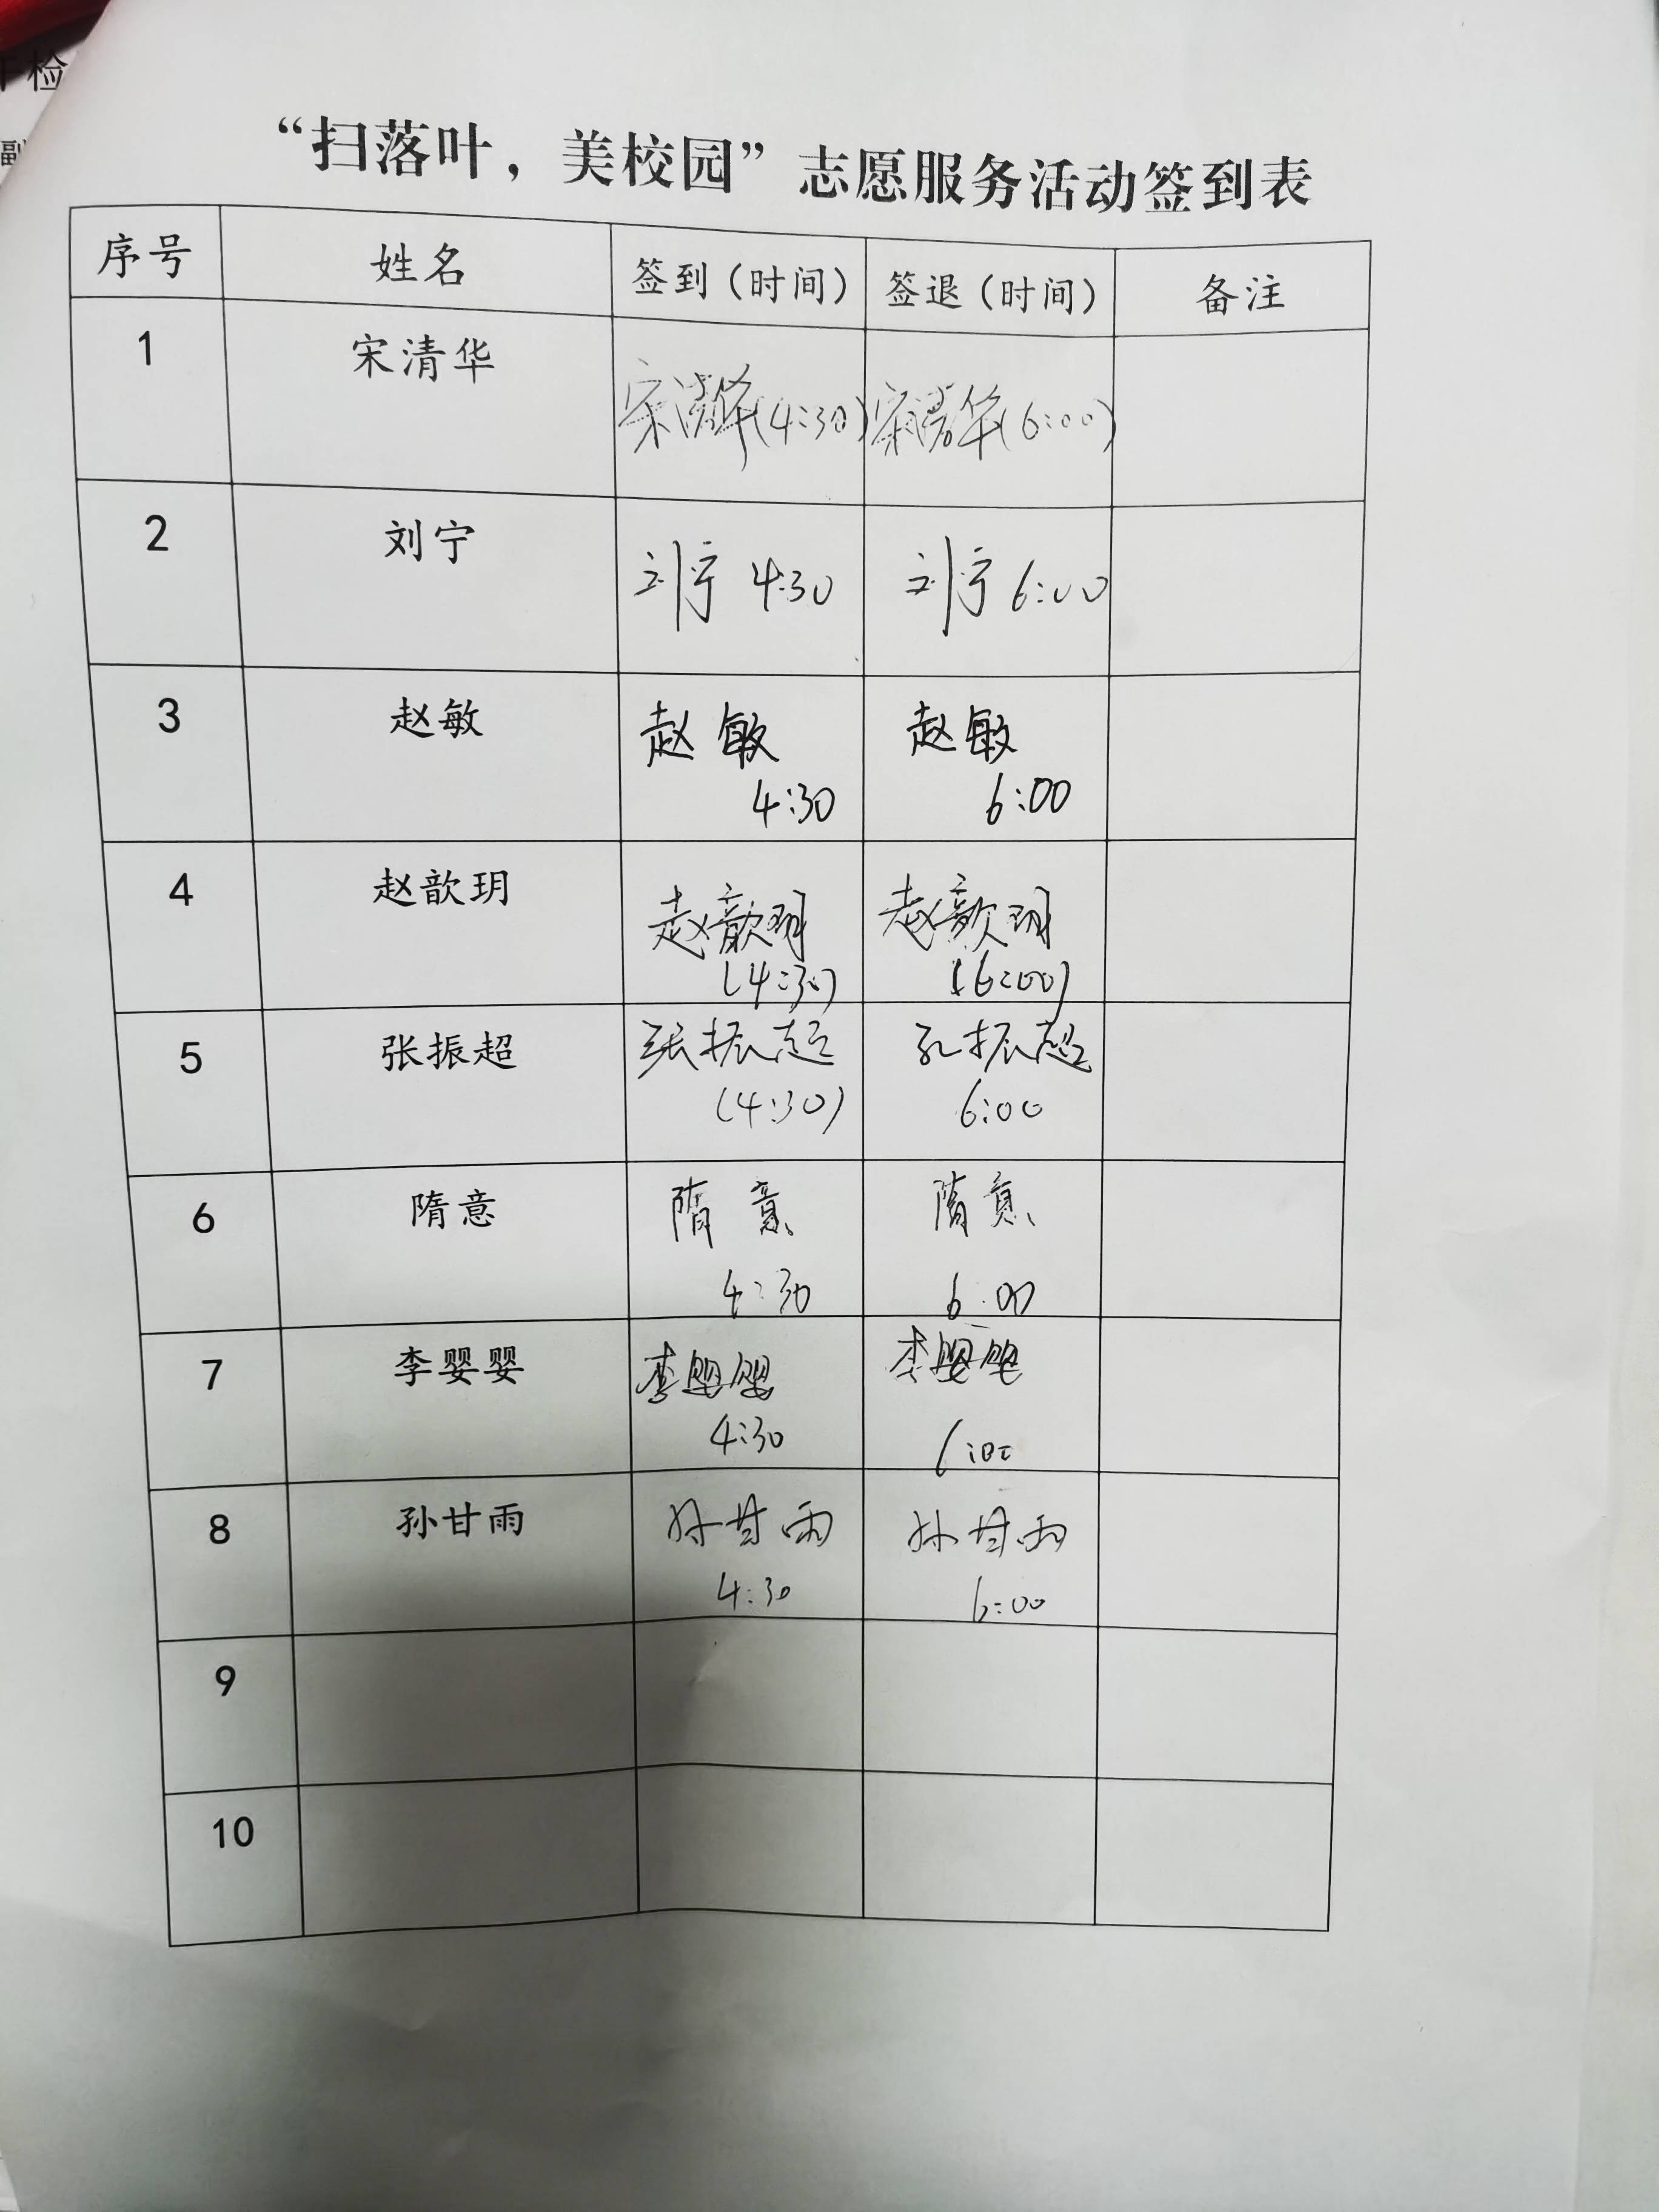 检
副
“扫落叶，美校园”志愿服务活动签到表
序号 姓名 签到（时间） 签退（时间） 备注
1 宋清华 宋清华(4:30) 宋清华(6:00)
2 刘宁 刘宁 4:30 刘宁 6:00
3 赵敏 赵敏 赵敏
4:30 6:00
4 赵歆玥 赵歆玥 赵歆玥
(4:30) (6:00)
5 张振超 张振超 张振超
(4:30) 6:00
6 隋意 隋意 隋意
4:30 6:00
7 李婴婴 李婴婴 李婴婴
4:30 6:00
8 孙甘雨 孙甘雨 孙甘雨
4:30 6:00
9
10